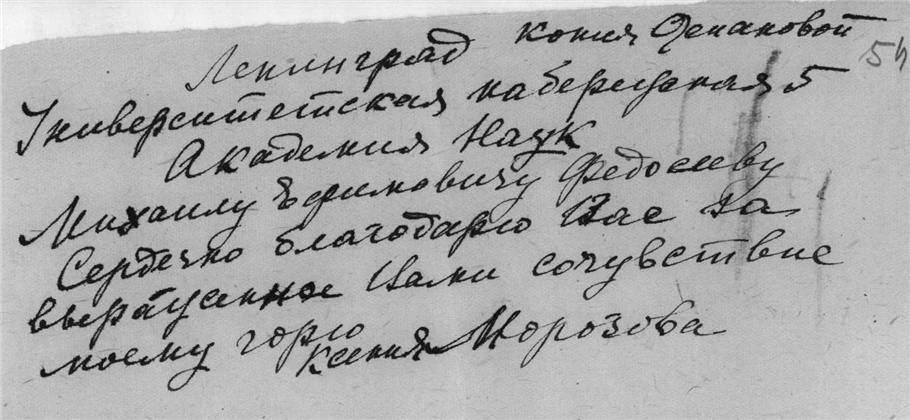 Ленинград копия Степановой
54
Университетская набережная 5
Академия Наук
Михаилу Ефимовичу Федосееву
Сердечно благодарю Вас за
выраженное Вами сочувствие
моему горю
Ксения Морозова